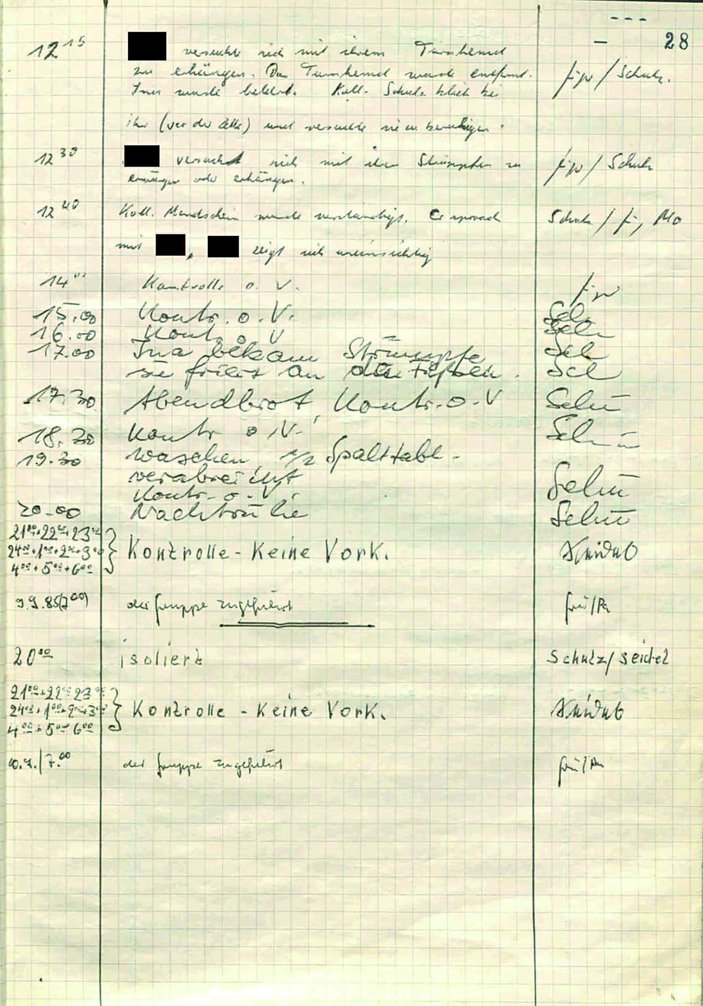 28
12 15 versuchte sich mit ihrem Turnhemd
zu erhängen. Das Turnhemd wurde entfernt.
Ina wurde belehrt. Koll. Schulz blieb bei
ihr (vor der Zelle) und versuchte sie zu beruhigen.
Schulz.
12 30 versucht sich mit ihren Strümpfen zu
erwürgen oder erhängen.
Schulz
12 40 Koll. Mondschein wurde verständigt. Er sprach
mit , zeigt sich uneinsichtig
Schulz
14 00 Kontrolle o. V.
15.00 Kontr. o. V.
16.00 Kontr. o. V
17.00 Ina bekam Strümpfe
sie friert an den Füßen.
17.30 Abendbrot, Kontr. o. V
18.30 Kontr. o. V.
19.30 waschen 1/2 Spalttabl.
verabreicht
Kontr. o. V.
20.00 Nachtruhe
21 00 + 22 00 + 23 00
24 00 + 1 00 + 2 00 + 3 00 } Kontrolle - Keine Vork.
4 00 + 5 00 + 6 00
9.9.85 (7 00) der Gruppe zugeführt
20 00 isoliert Schulz/Seidel
21 00 + 22 00 23 00
24 00 + 1 00 + 2 00 + 3 00 } Kontrolle - Keine Vork.
4 00 + 5 00 6 00
10.9./7.00 der Gruppe zugeführt